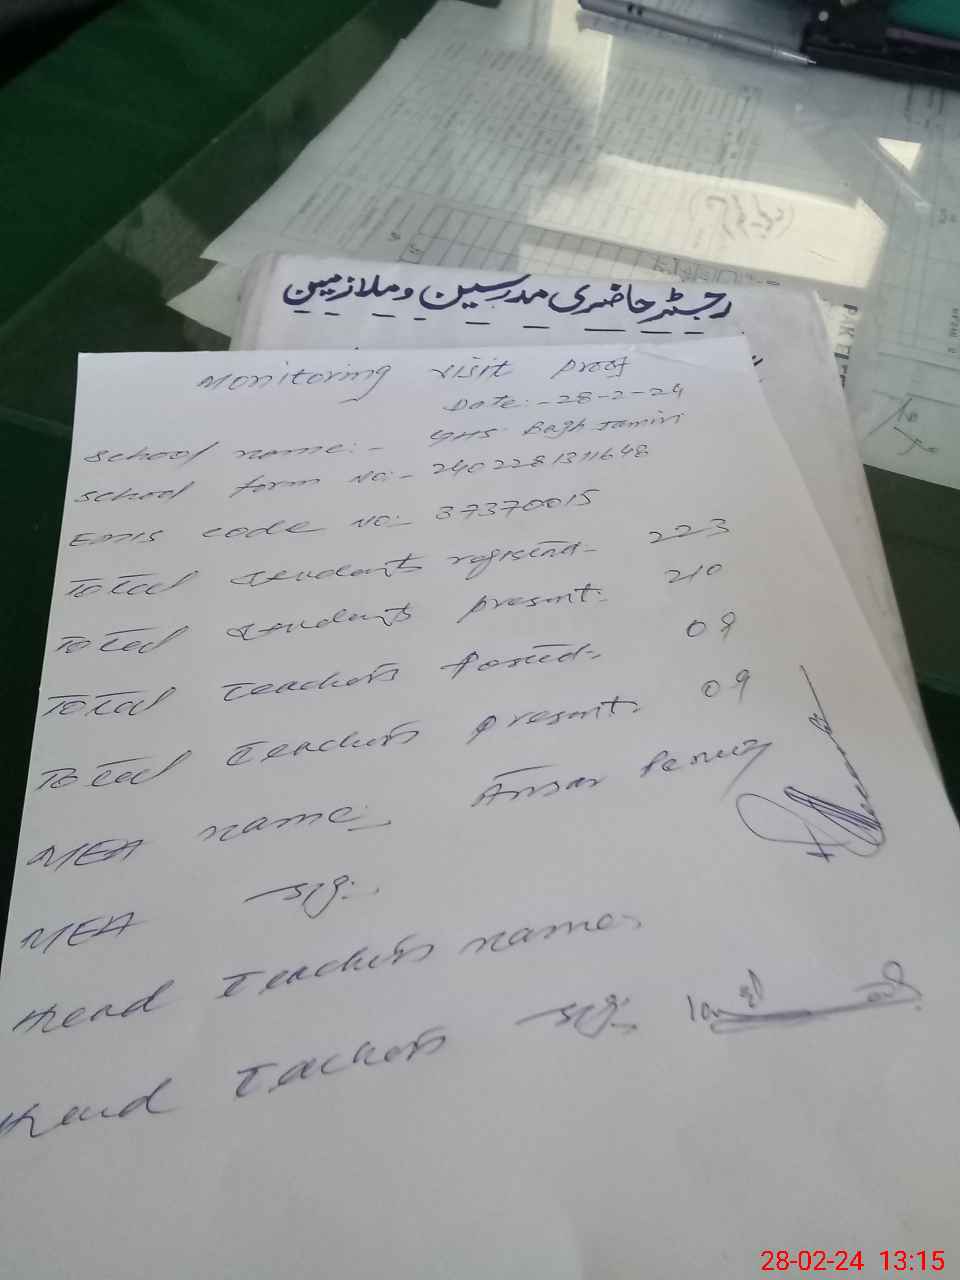 رجسٹر حاضری مدرسین و ملازمین
Monitoring visit proof
Date:- 28-2-24
School name:- GHS Bagh Jamiri
School form No:- 2402281311648
EMIS code No:- 37370015
Total students registerd- 223
Total students present:- 210
Total teachers posted:- 09
Total teachers present:- 09
MEA name:- Ansar Perviz
MEA sig:-
Head teachers name:
Head teachers sig:
28-02-24 13:15